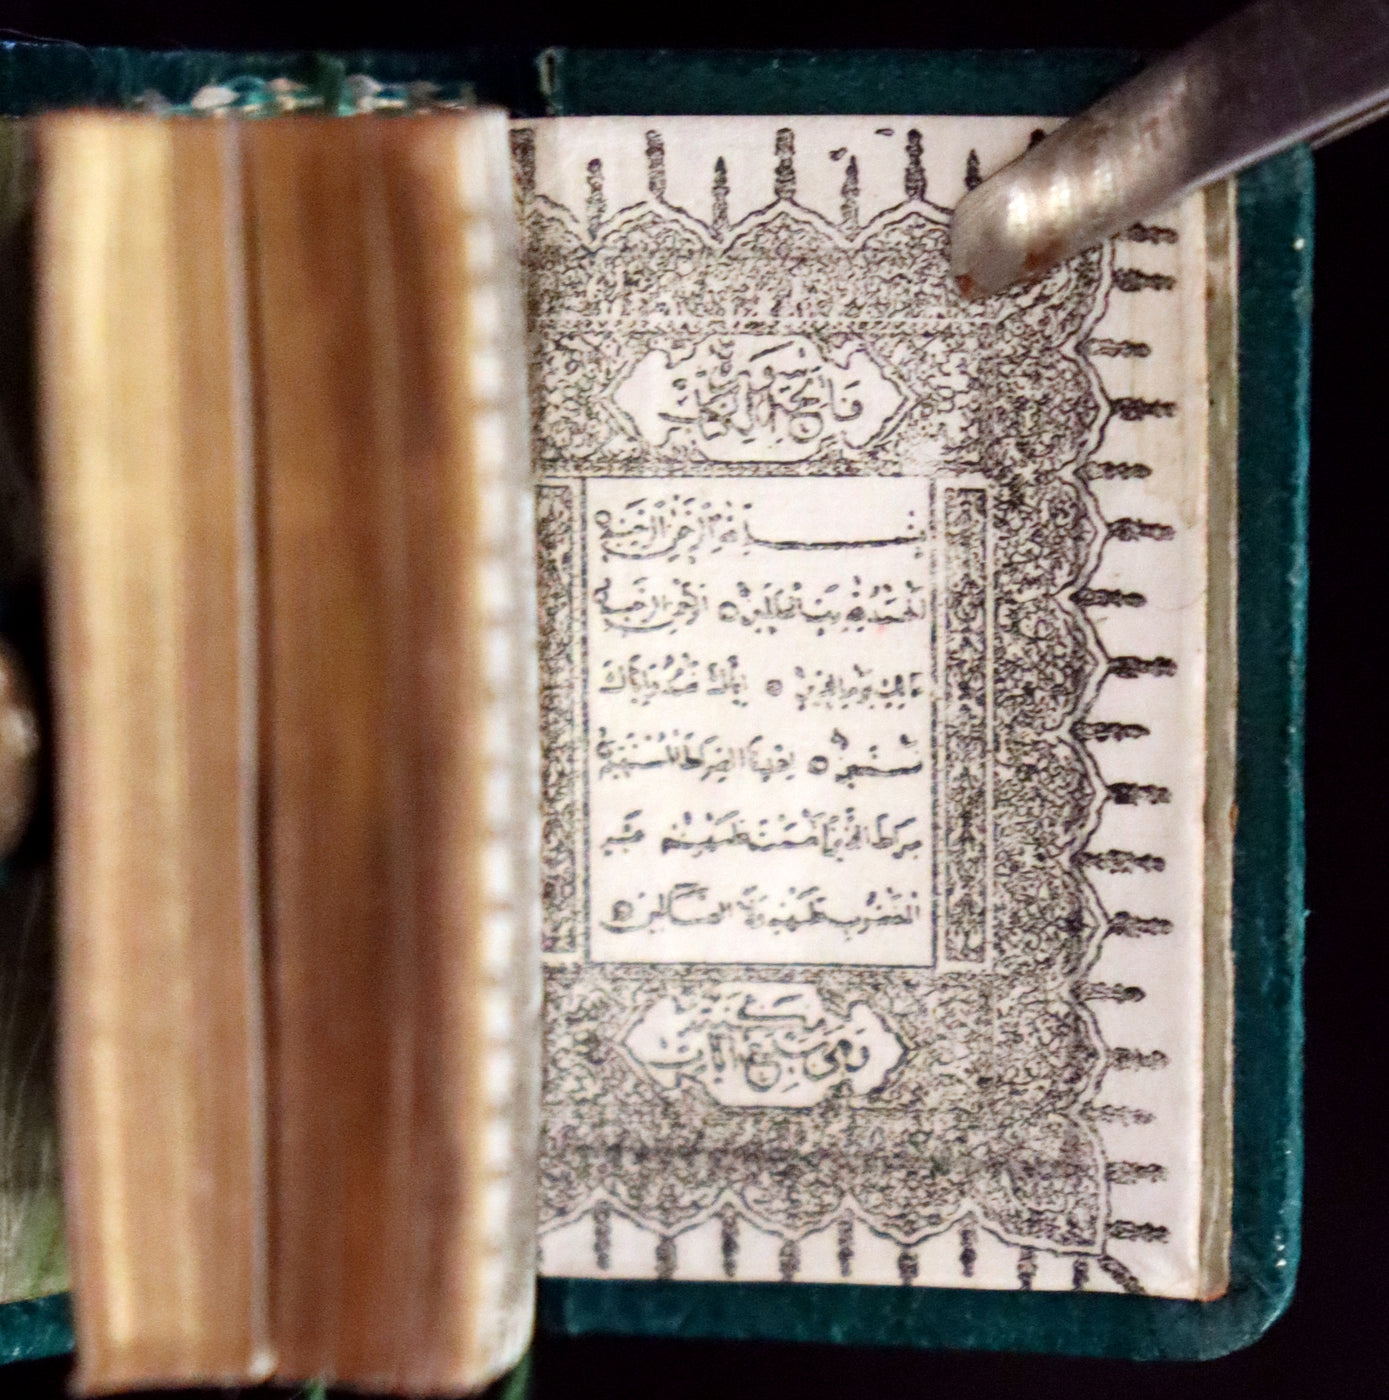 سورة
فاتحة الكتاب
بسم الله الرحمن الرحيم
الحمد لله رب العالمين الرحمن الرحيم
مالك يوم الدين إياك نعبد وإياك
نستعين اهدنا الصراط المستقيم
صراط الذين أنعمت عليهم غير
المغضوب عليهم ولا الضالين
وهي سبع آيات